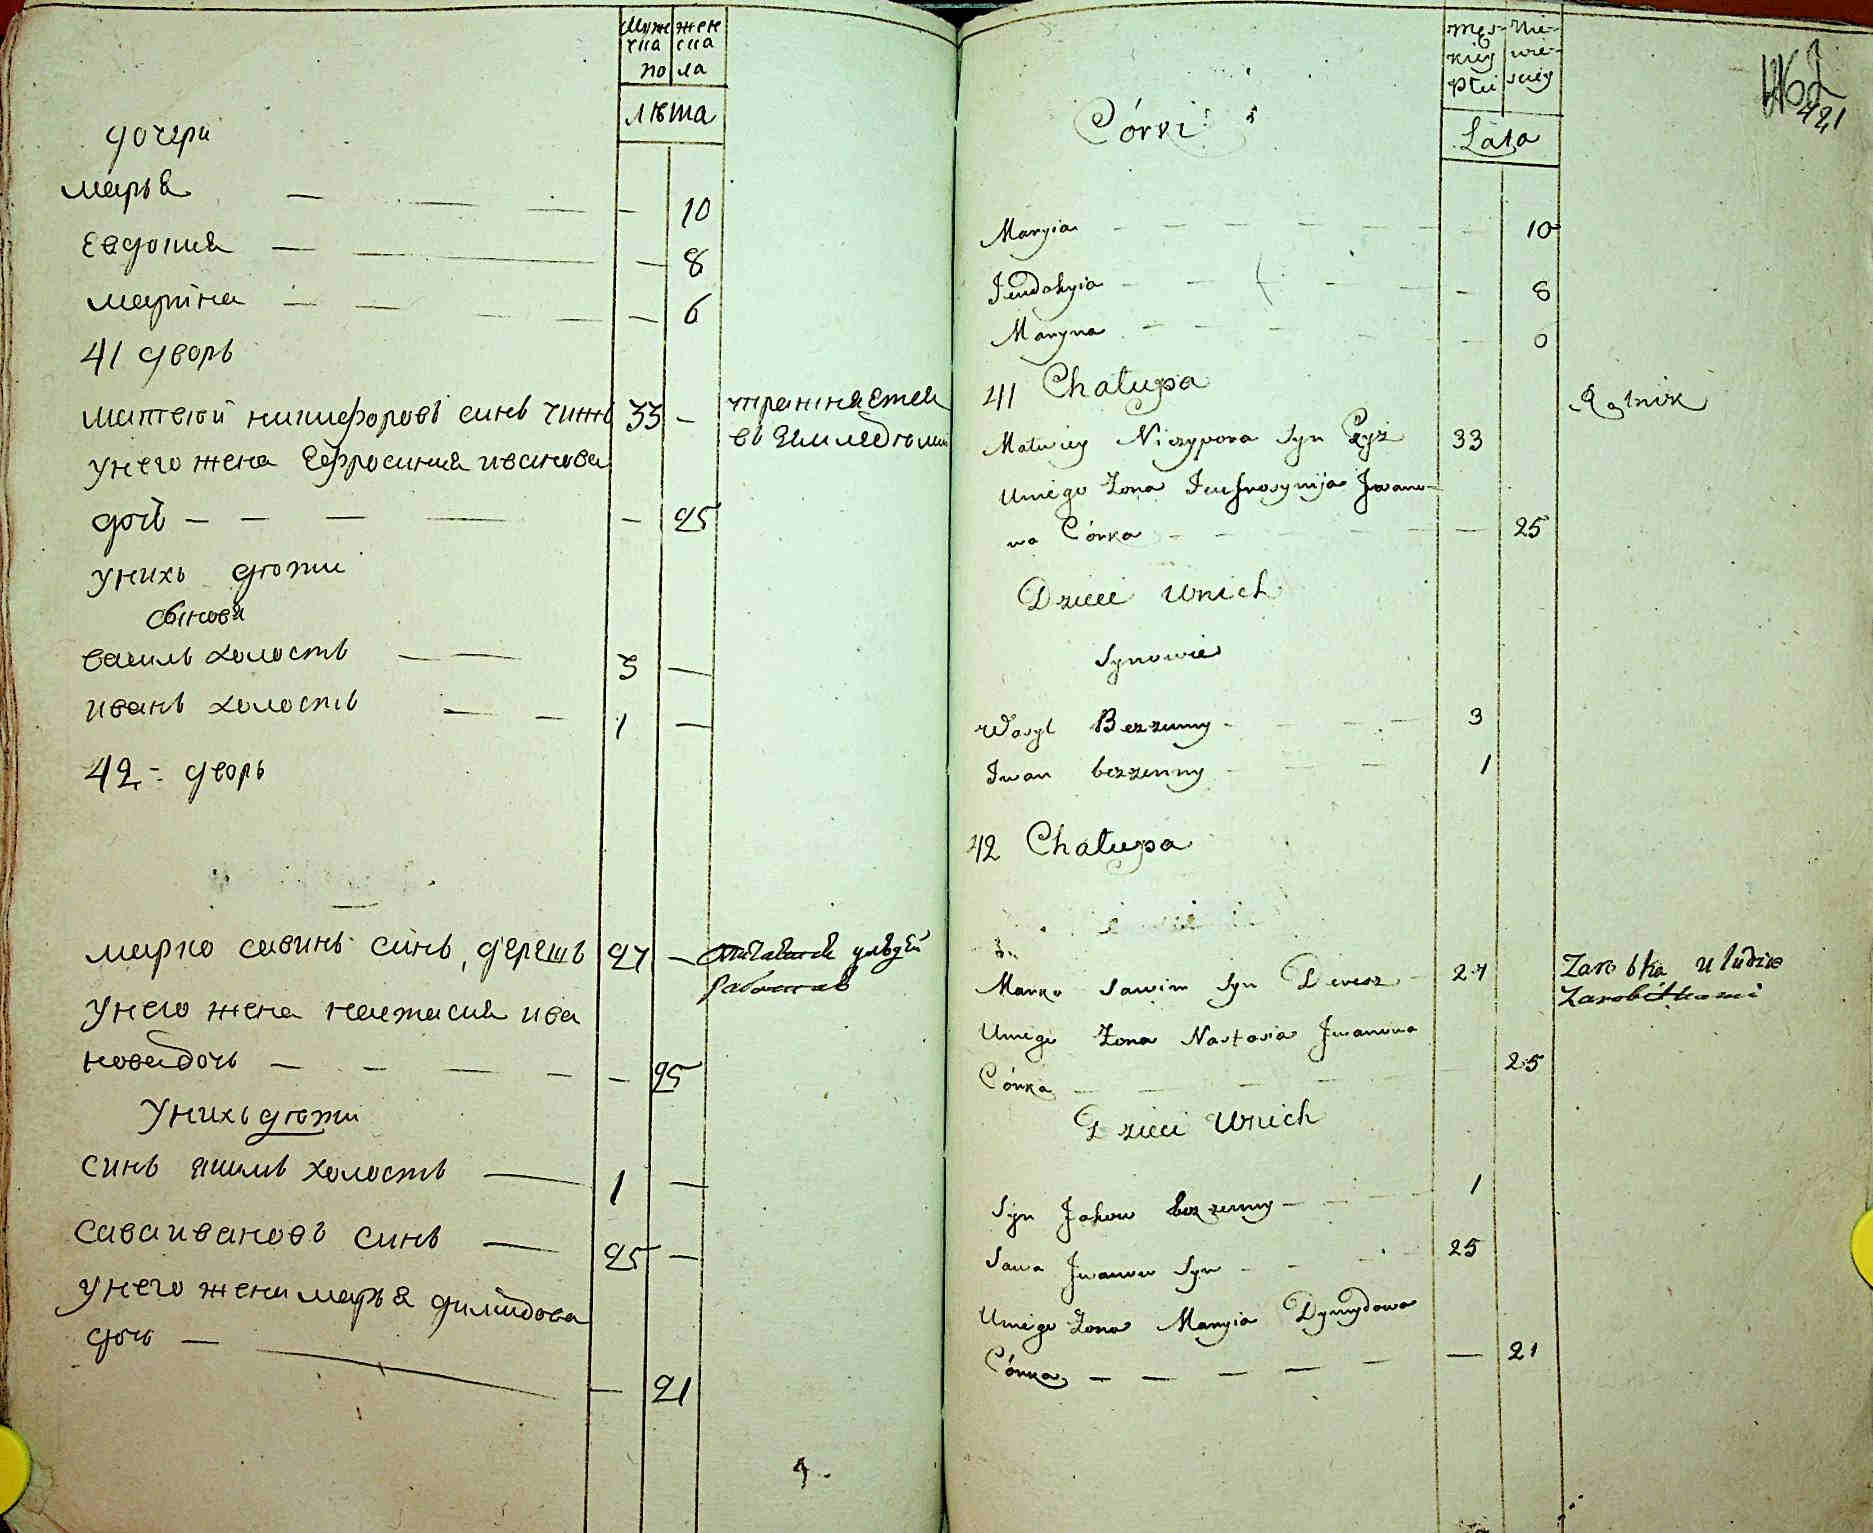 Муж жен
ска ска
по ла
лѣта
дочери
марья — — — — 10
Евдокия — — — 8
марина — — — — 6
41 дворъ
матвей никифоровъ синъ чижъ 33 —
унего жена Ефросиния иванова
дочь — — — — — 25
унихъ дѣти
сыновя
василь холостъ — — 3 —
иванъ холостъ — — 1 —
42 = дворъ
марко савинъ синъ дерешъ 27 — улюдей
работъ
унего жена настасия ива
новадочь — — — — — 25
унихъ дѣти
синъ якимъ холостъ — 1 —
саваивановъ синъ — 25 —
унего жена марья димидова
дочь — — — 21
męs- Nie-
kiey wie-
płci sciey
Lata
421
Córki
Maryia — — — — — — — 10
Jeudokyia — — — — — 8
Maryna — — — — — 0
41 Chałupa
Rolnik
Matwiey Niczypora Syn Czyż 33
Uniego Żona Jeufrosynija Jwano-
wa Córka — — — — — 25
Dzieci Unich
Synowie
Wasyl Bezzenny — — — — 3
Jwan bezzenny — — — 1
42 Chałupa
Marko Sawin Syn Deresz — 27
Zarobka u ludzie
Zarobitkami
Uniego Żona Nastasia Jwanowa
Córka — — — — 25
Dzieci Unich
Syn Jakow bezzenny — — — 1
Sawa Jwanow Syn — — — 25
Uniego Żona Maryia Dymydowa
Córka — — — — — — 21